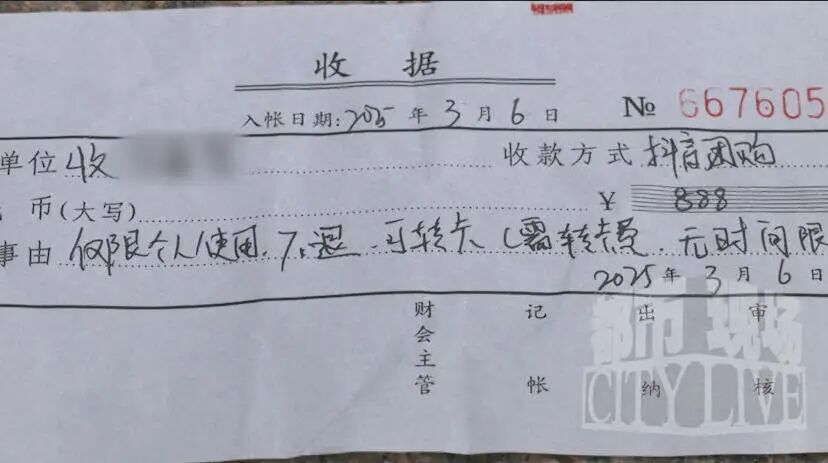 收 据
入帐日期:2025 年 3 月 6 日 № 667605
单位 收 收款方式 抖音团购
币(大写) ¥ 888
事由 仅限个人使用.不退.可转卡(需转卡费.无时间限
2025 年 3 月 6 日
财会主管 记帐 出纳 审核
都市现场
CITYLIVE